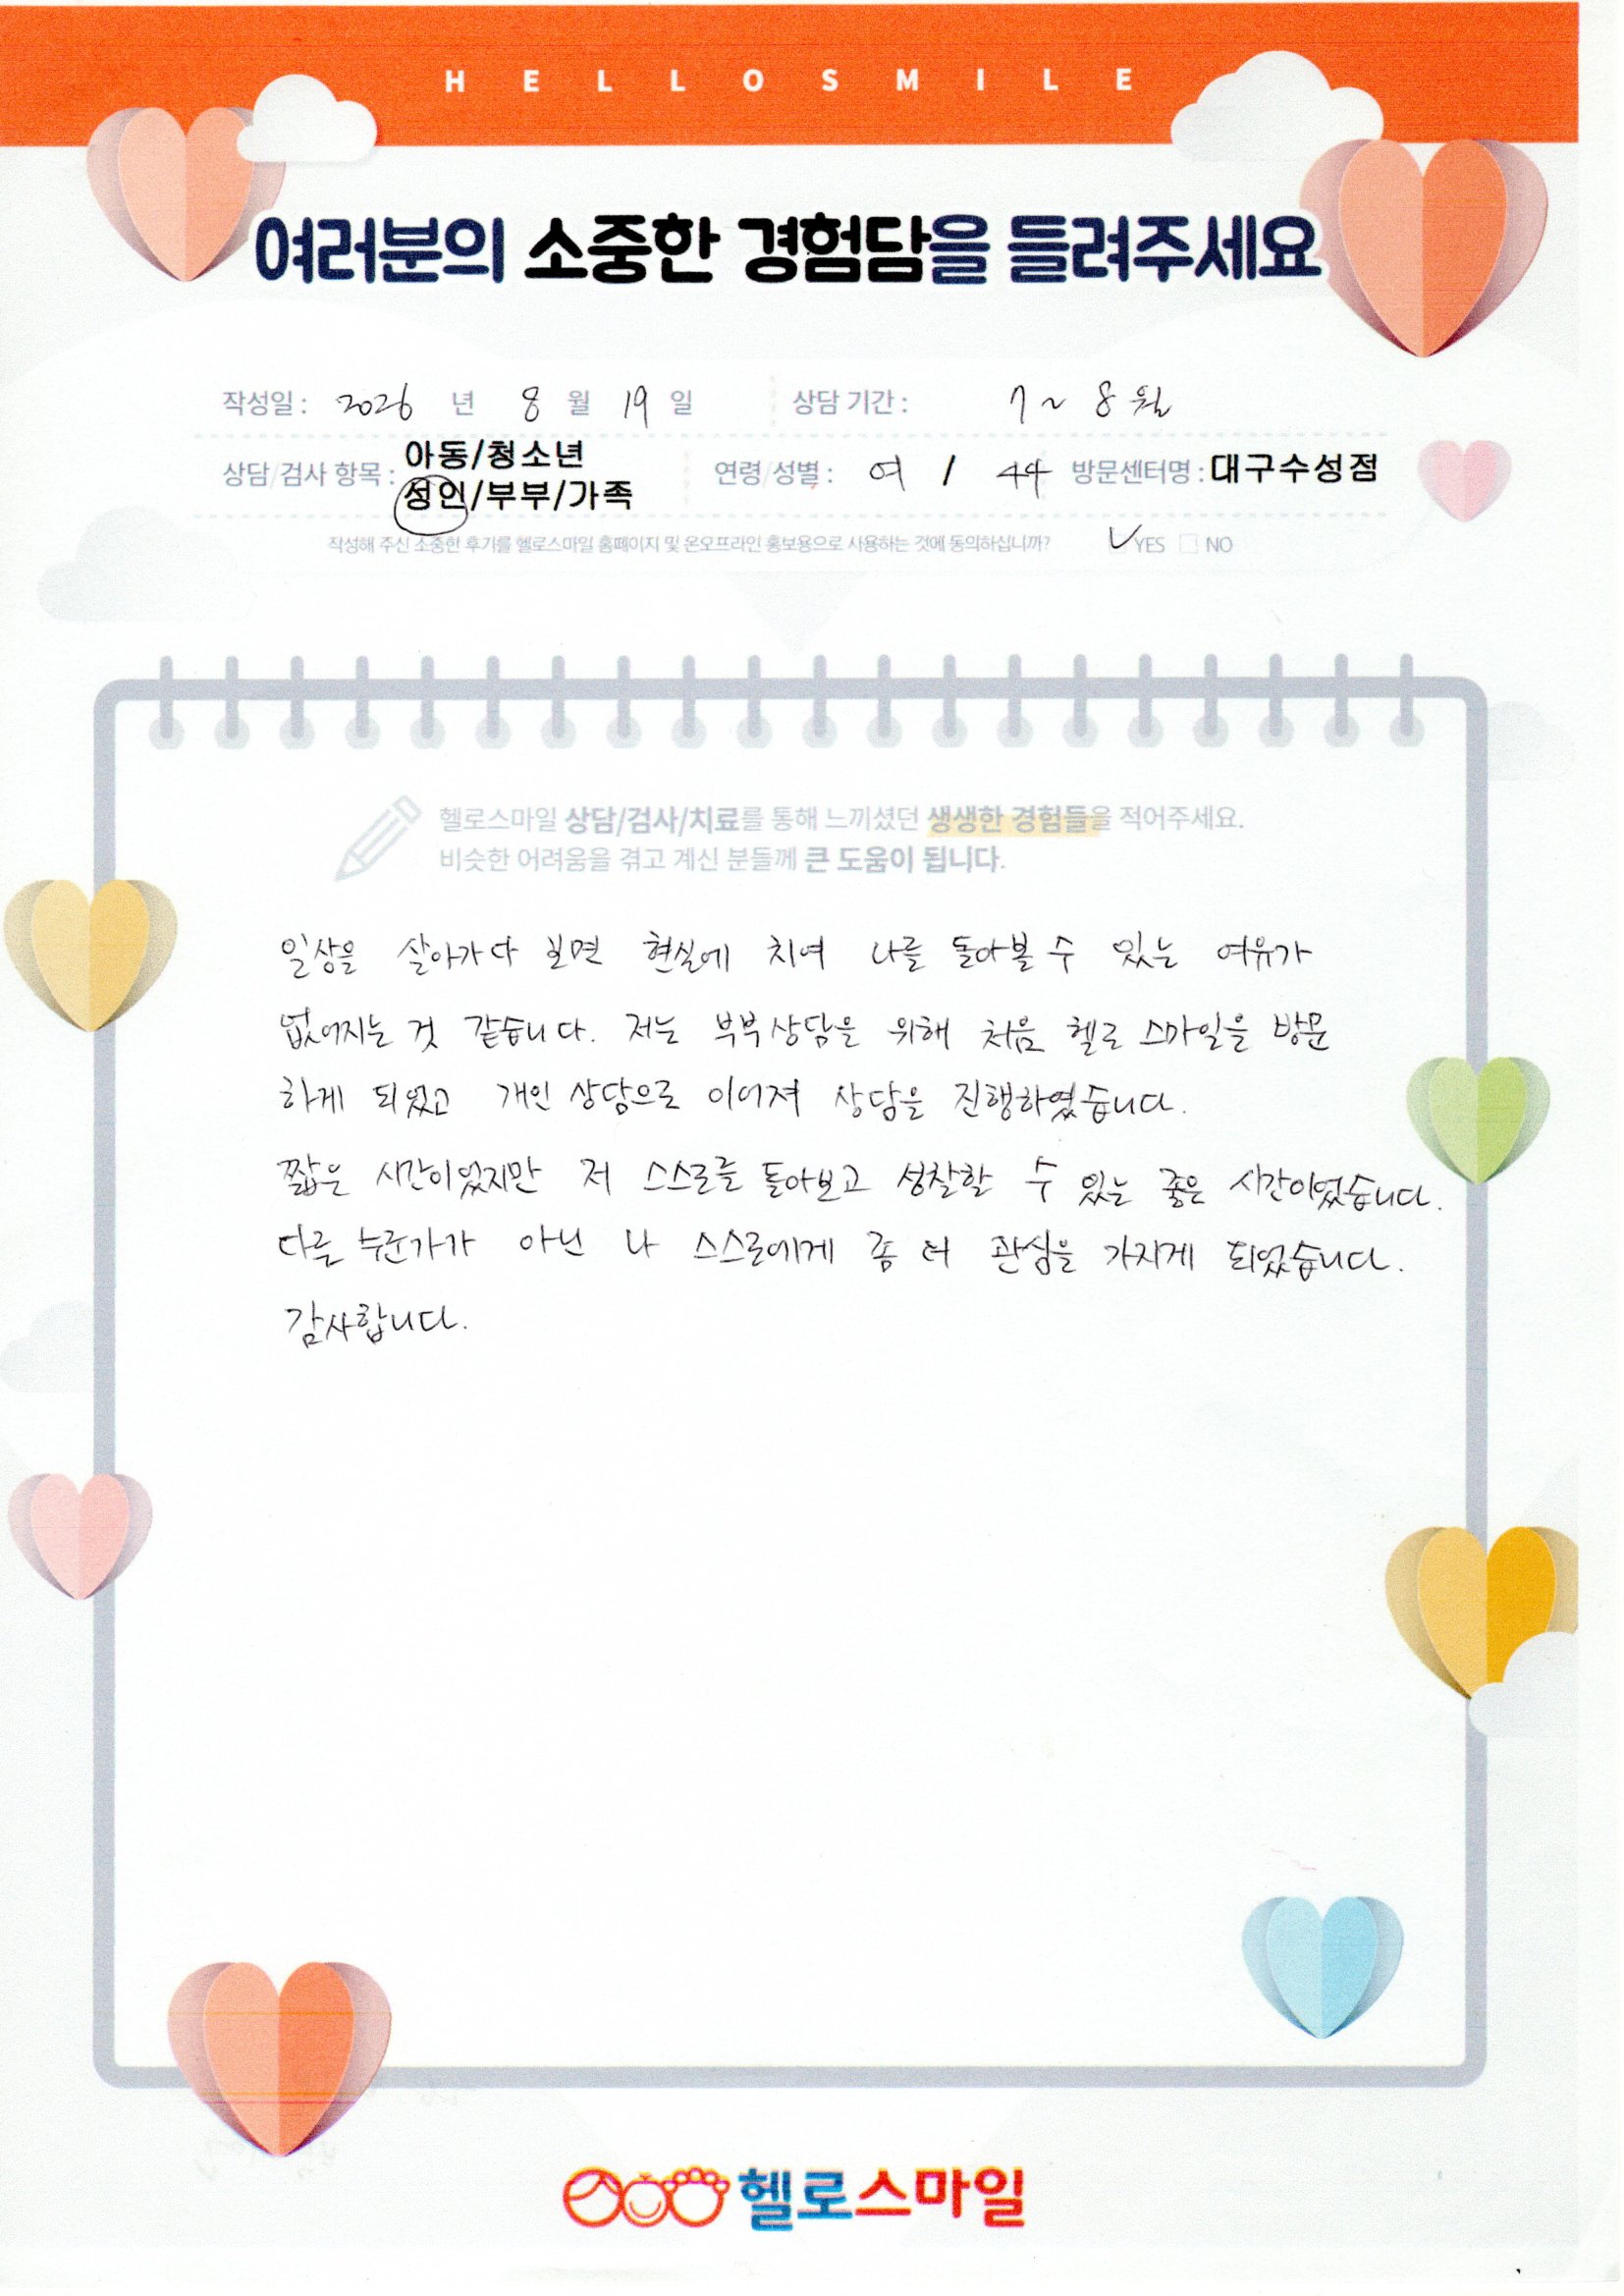 HELLOSMILE
여러분의 소중한 경험담을 들려주세요
작성일 : 2026 년 8 월 19 일 상담 기간 : 7 ~ 8월
상담/검사 항목 : 아동/청소년
성인/부부/가족
연령/성별 : 여 / 44 방문센터명 : 대구수성점
작성해 주신 소중한 후기를 헬로스마일 홈페이지 및 온오프라인 홍보용으로 사용하는 것에 동의하십니까? YES NO
헬로스마일 상담/검사/치료를 통해 느끼셨던 생생한 경험들을 적어주세요.
비슷한 어려움을 겪고 계신 분들께 큰 도움이 됩니다.
일상을 살아가다 보면 현실에 치여 나를 돌아볼 수 있는 여유가
없어지는 것 같습니다. 저는 부부상담을 위해 처음 헬로 스마일을 방문
하게 되었고 개인 상담으로 이어져 상담을 진행하였습니다.
짧은 시간이었지만 저 스스로를 돌아보고 성찰할 수 있는 좋은 시간이었습니다.
다른 누군가가 아닌 나 스스로에게 좀 더 관심을 가지게 되었습니다.
감사합니다.
헬로스마일